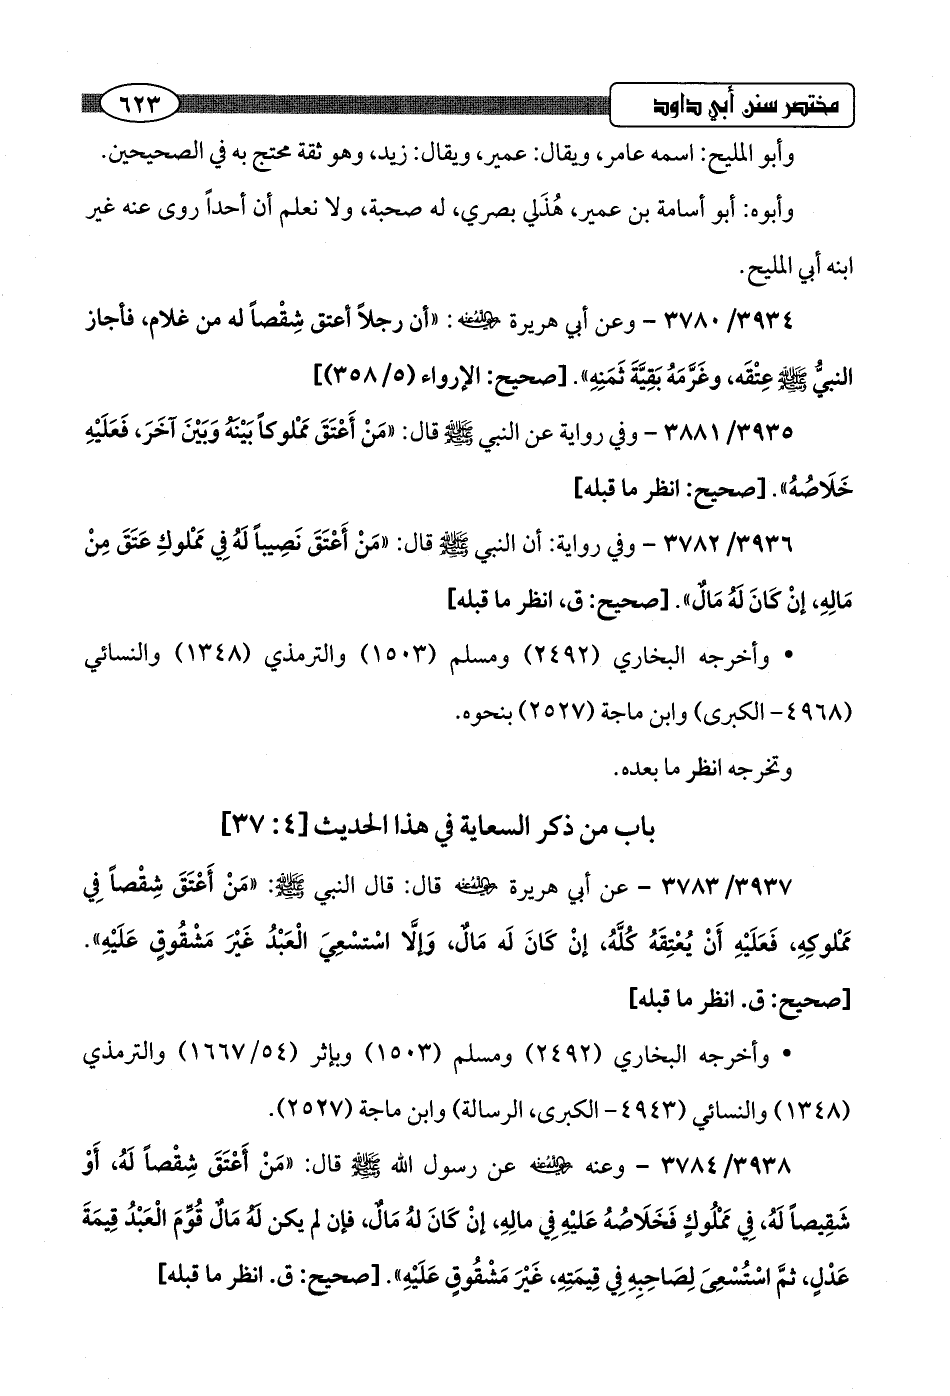 مختصر سنن أبي داود ٦٢٣
وأبو المليح: اسمه عامر، ويقال: عمير، ويقال: زيد، وهو ثقة محتج به في الصحيحين.
وأبوه: أبو أسامة بن عمير، هُذَلي بصري، له صحبة، ولا نعلم أن أحداً روى عنه غير
ابنه أبي المليح.
٣٧٨٠/٣٩٣٤ - وعن أبي هريرة رضي الله عنه: «أن رجلاً أعتق شِقْصاً له من غلام، فأجاز
النبيُّ ﷺ عِتْقَه، وغَرَّمَهُ بَقِيَّةَ ثَمَنِهِ». [صحيح: الإرواء (٣٥٨/٥)]
٣٨٨١/٣٩٣٥ - وفي رواية عن النبي ﷺ قال: «مَنْ أَعْتَقَ مَمْلوكاً بَيْنَهُ وَبَيْنَ آخَرَ، فَعَلَيْهِ
خَلَاصُهُ». [صحيح: انظر ما قبله]
٣٧٨٢/٣٩٣٦ - وفي رواية: أن النبي ﷺ قال: «مَنْ أَعْتَقَ نَصِيباً لَهُ فِي مَمْلوكِ عَتَقَ مِنْ
مَالِهِ، إِنْ كَانَ لَهُ مَالٌ». [صحيح: ق، انظر ما قبله]
• وأخرجه البخاري (٢٤٩٢) ومسلم (١٥٠٣) والترمذي (١٣٤٨) والنسائي
(٤٩٦٨- الكبرى) وابن ماجة (٢٥٢٧) بنحوه.
وتخرجه انظر ما بعده.
باب من ذكر السعاية في هذا الحديث [٤: ٣٧]
٣٧٨٣/٣٩٣٧ - عن أبي هريرة رضي الله عنه قال: قال النبي ﷺ: «مَنْ أَعْتَقَ شِقْصاً فِي
مَمْلوكِهِ، فَعَلَيْهِ أَنْ يُعْتِقَهُ كُلَّهُ، إِنْ كَانَ لَه مَالٌ، وَإِلَّا اسْتَسْعِيَ الْعَبْدُ غَيْرَ مَشْقُوقٍ عَلَيْهِ».
[صحيح: ق. انظر ما قبله]
• وأخرجه البخاري (٢٤٩٢) ومسلم (١٥٠٣) وبإثر (١٦٦٧/٥٤) والترمذي
(١٣٤٨) والنسائي (٤٩٤٣- الكبرى، الرسالة) وابن ماجة (٢٥٢٧).
٣٧٨٤/٣٩٣٨ - وعنه رضي الله عنه عن رسول الله ﷺ قال: «مَنْ أَعْتَقَ شِقْصاً لَهُ، أَوْ
شَقِيصاً لَهُ، فِي مَمْلُوكٍ فَخَلَاصُهُ عَلَيْهِ فِي مالِهِ، إِنْ كَانَ لَهُ مَالٌ، فإن لم يكن لَهُ مَالٌ قُوِّمَ الْعَبْدُ قِيمَةَ
عَدْلٍ، ثمَّ اسْتُسْعِىَ لِصَاحِبِهِ فِي قِيمَتِهِ، غَيْرَ مَشْقُوقٍ عَلَيْهِ». [صحيح: ق. انظر ما قبله]